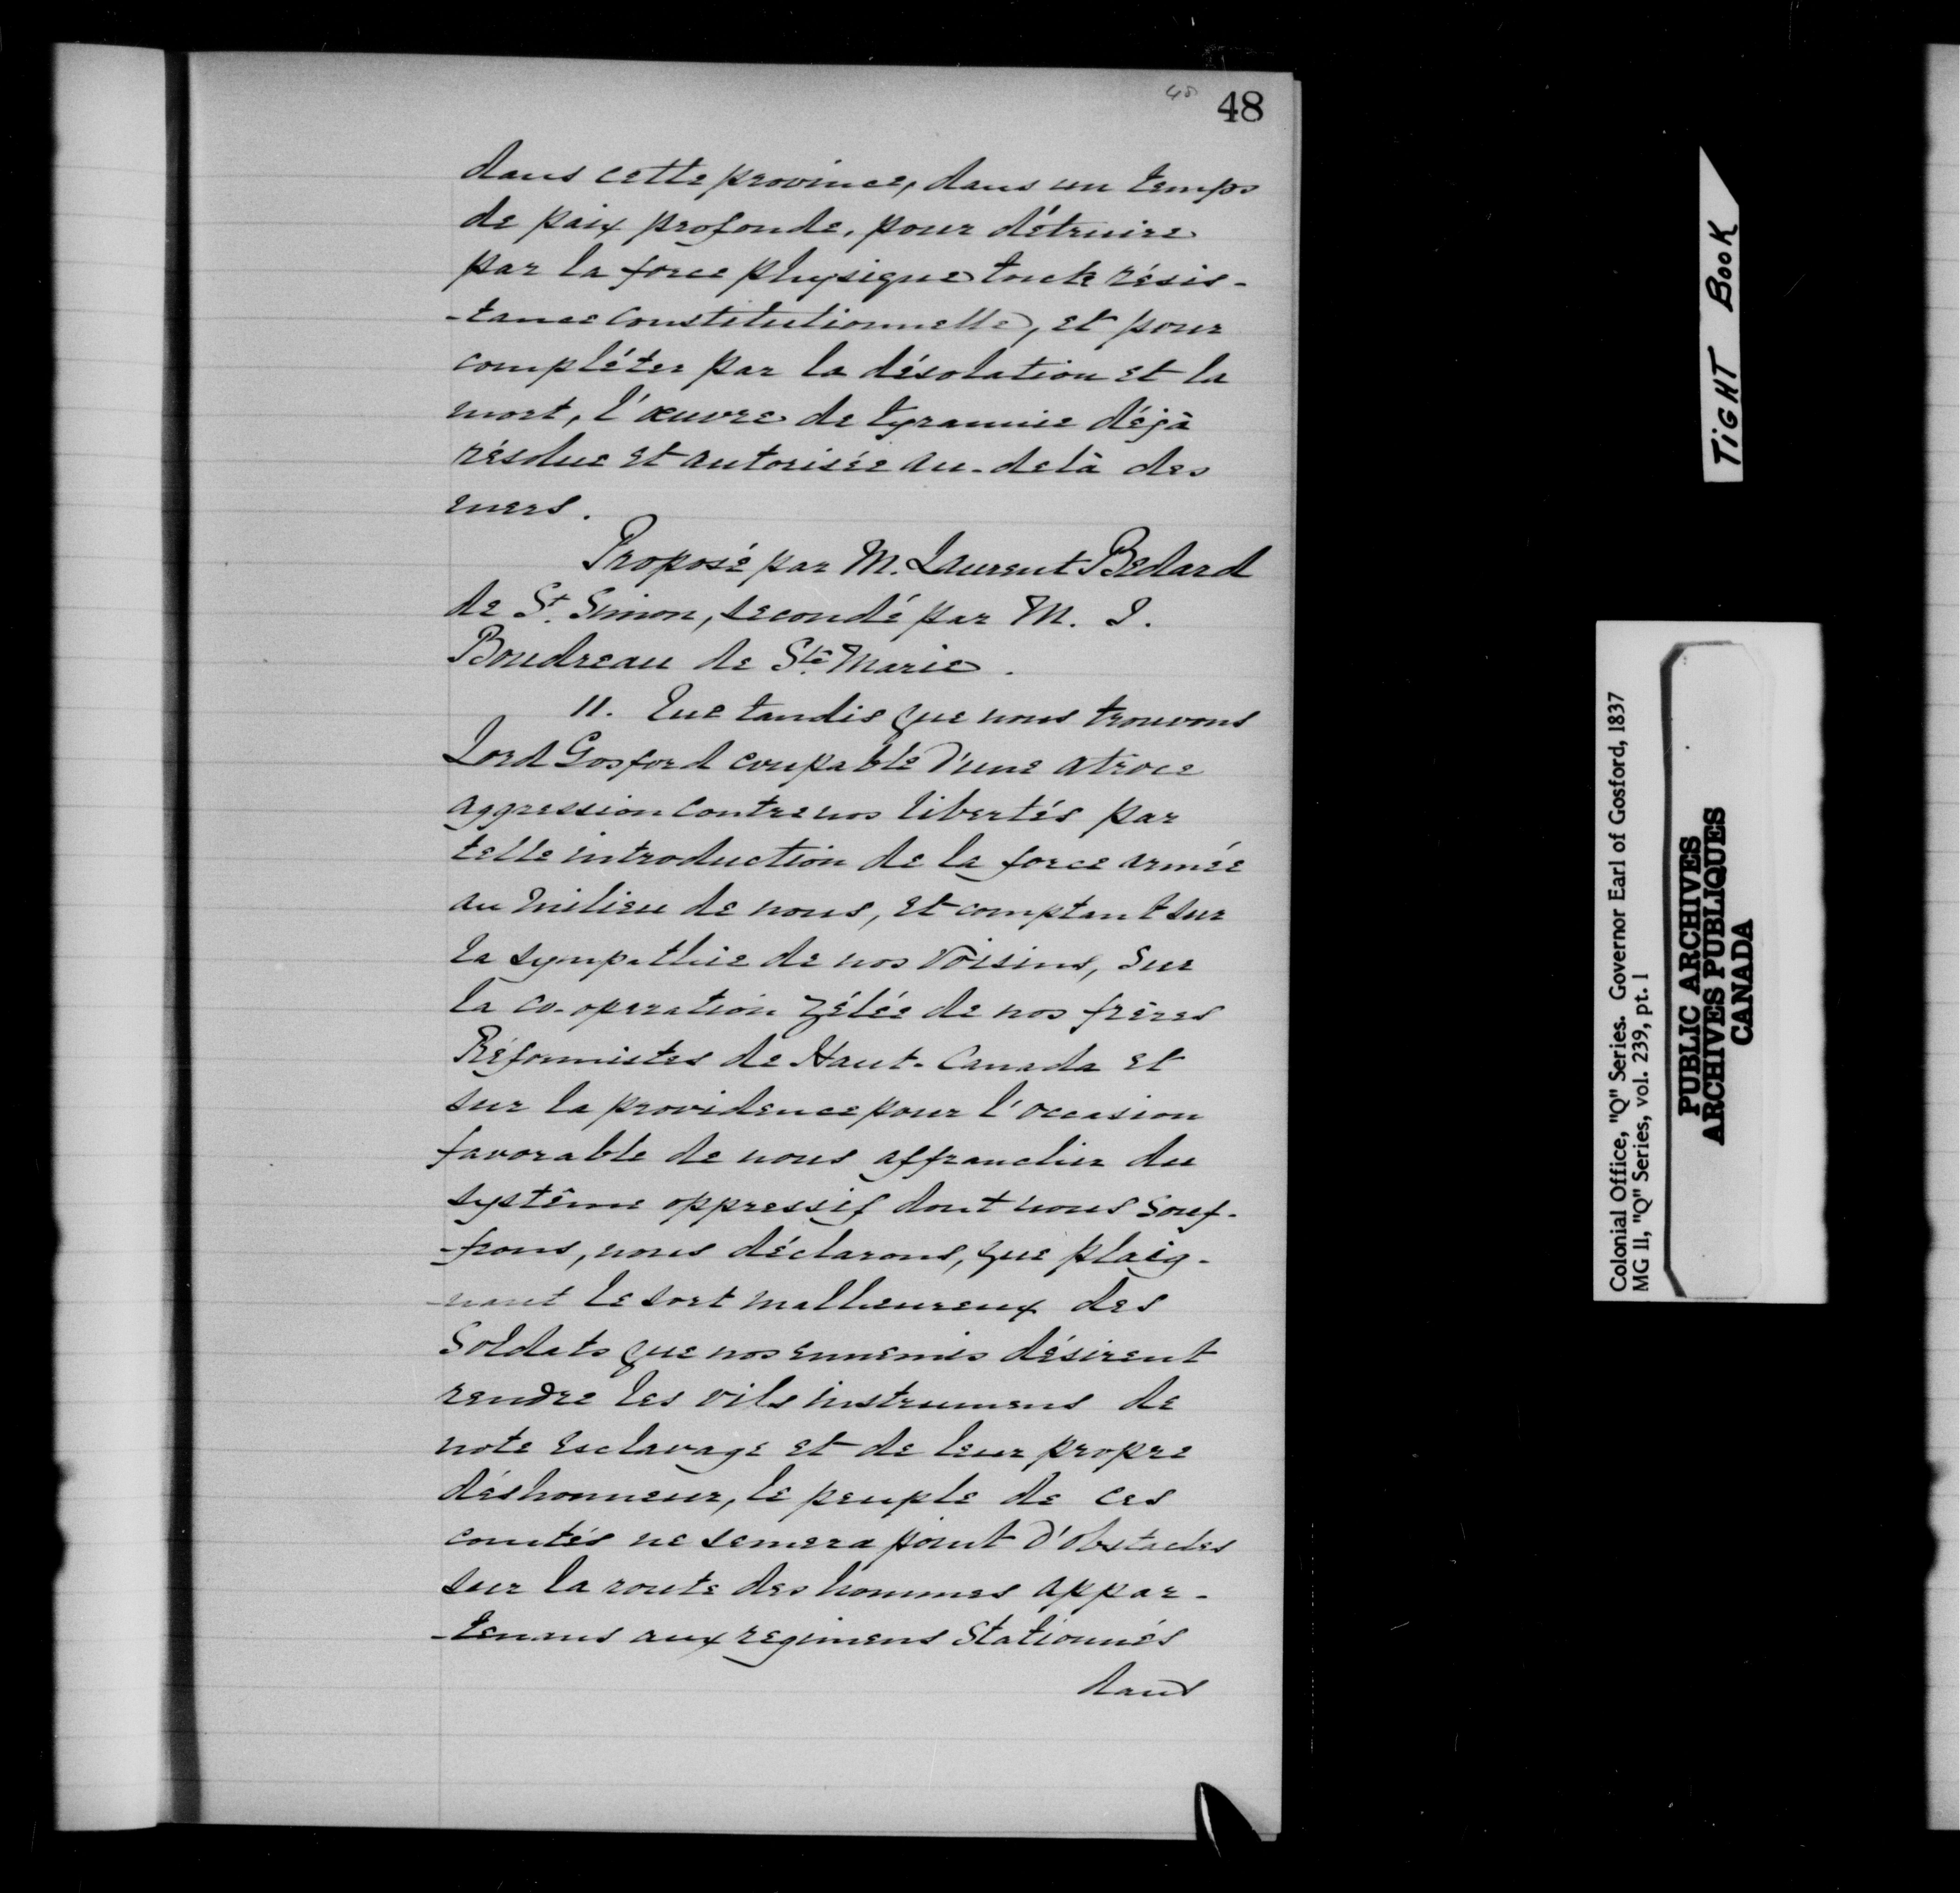 48
48
dans cette province, dans un temps
de paix profonde, pour détruire
par la force physique toute résis-
-tance constitutionnelle, et pour
compléter par la désolation et la
mort, l'œuvre de tyrannie déjà
résolue et autorisée au-delà des
mers.
Proposé par M. Laurent Bedard
de St. Simon, secondé par M. J.
Boudreau de Ste Marie.
11. Que tandis que nous trouvons
Lord Gosford coupable d'une atroce
aggression contre nos libertés par
telle introduction de la force armée
au milieu de nous, et comptant sur
la sympathie de nos voisins, sur
la co-operation zélée de nos frères
Réformistes de Haut-Canada et
sur la providence pour l'occasion
favorable de nous affranchir du
systême oppressif dont nous souf-
-frons, nous déclarons, que plaig-
-nant le sort malheureux des
Soldats que nos ennemis désirent
rendre les vils instrumens de
note esclavage et de leur propre
déshonneur, le peuple de ces
comtés ne semera point d'obstacles
sur la route des hommes appar-
-tenans aux regimens stationnés
dans
TIGHT BOOK
Colonial Office, "Q" Series. Governor Earl of Gosford, 1837
MG 11, "Q" Series, vol. 239, pt. 1
PUBLIC ARCHIVES
ARCHIVES PUBLIQUES
CANADA